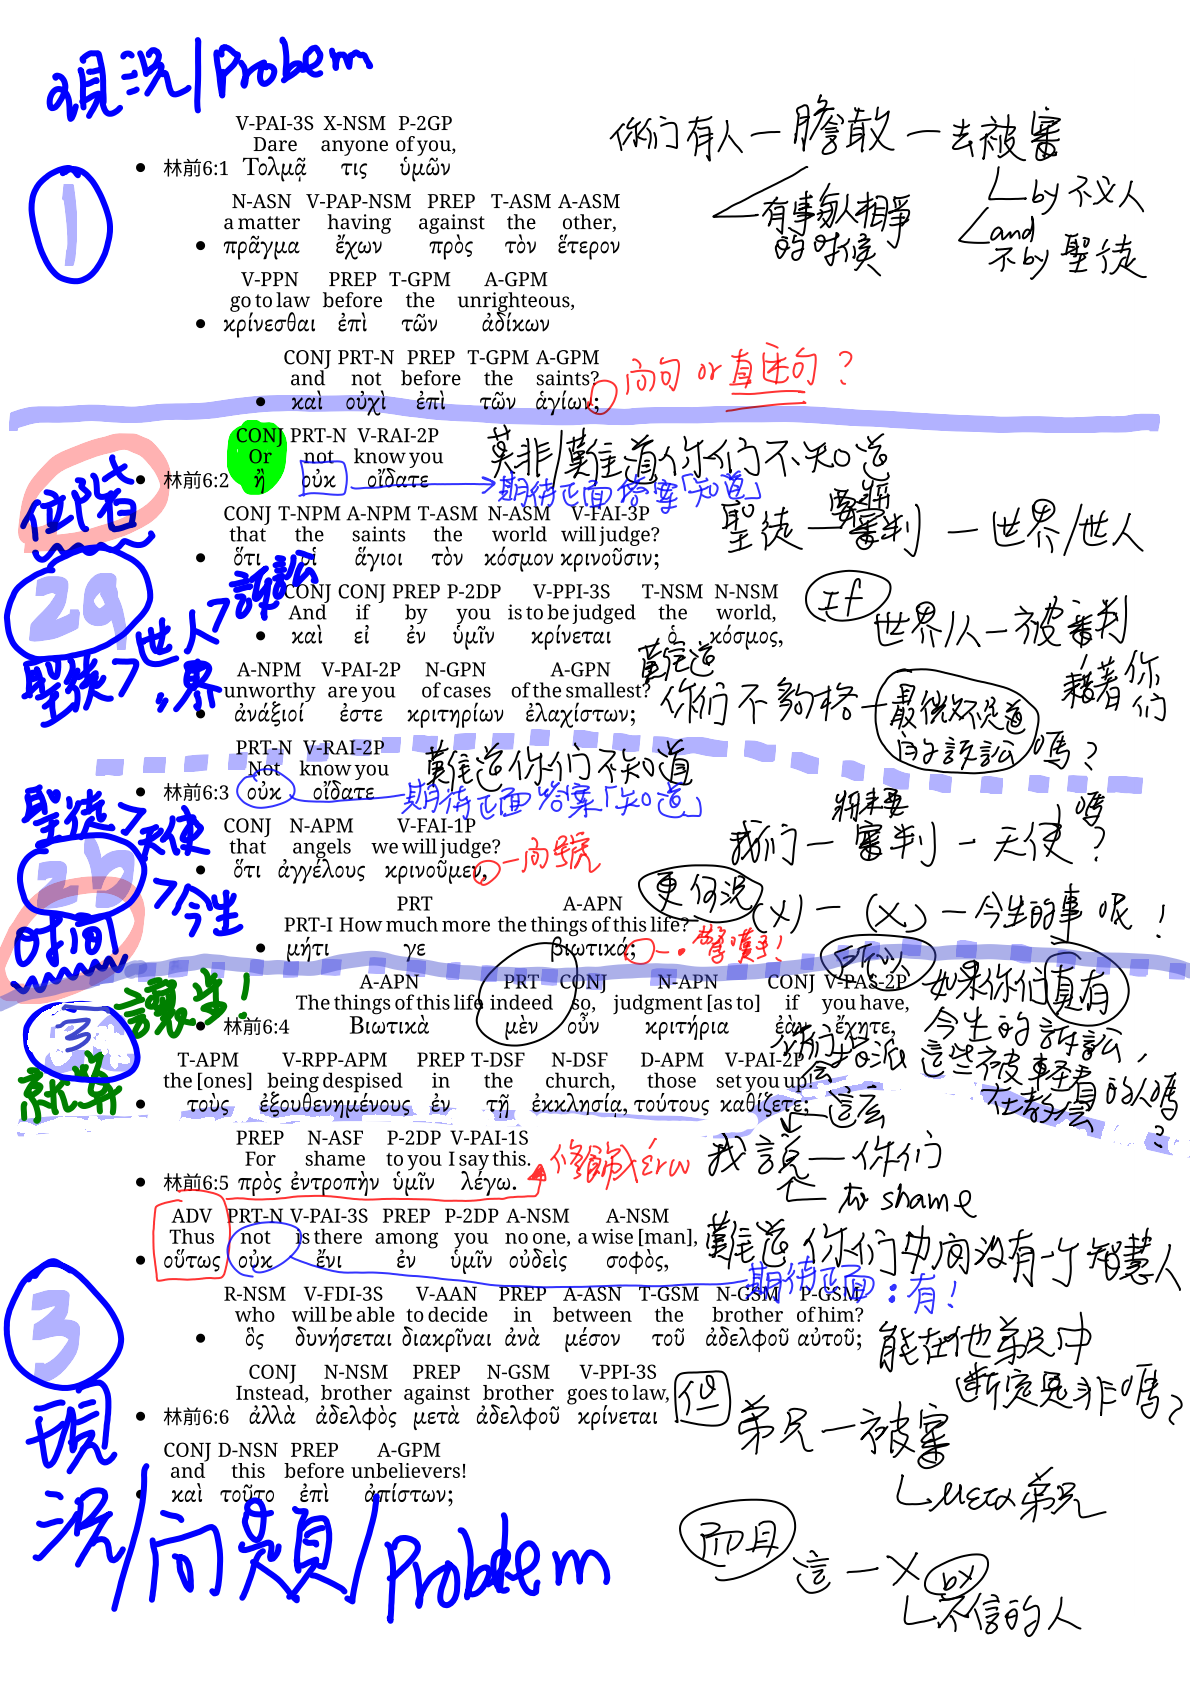 現況/Probem
V-PAI-3S X-NSM P-2GP
Dare anyone of you,
• 林前6:1 Τολμᾷ τις ὑμῶν
你们有人一膽敢一去被審
N-ASN V-PAP-NSM PREP T-ASM A-ASM
a matter having against the other,
• πρᾶγμα ἔχων πρὸς τὸν ἕτερον
有事與人相爭
的时候
by 不义人
and
不 by 聖徒
1
V-PPN PREP T-GPM A-GPM
go to law before the unrighteous,
• κρίνεσθαι ἐπὶ τῶν ἀδίκων
CONJ PRT-N PREP T-GPM A-GPM
and not before the saints?
• καὶ οὐχὶ ἐπὶ τῶν ἁγίων;
问句 or 直述句?
CONJ PRT-N V-RAI-2P
Or not know you
• 林前6:2 ἢ οὐκ οἴδατε
莫非/難道你们不知道
期待正面答案「知道」
位階
CONJ T-NPM A-NPM T-ASM N-ASM V-FAI-3P
that the saints the world will judge?
• ὅτι οἱ ἅγιοι τὸν κόσμον κρινοῦσιν;
聖徒一審判一世界/世人
2a
訴訟
CONJ CONJ PREP P-2DP V-PPI-3S T-NSM N-NSM
And if by you is to be judged the world,
• καὶ εἰ ἐν ὑμῖν κρίνεται ὁ κόσμος,
If
世界/人一被審判
藉著你们
聖徒>世人>
界
A-NPM V-PAI-2P N-GPN A-GPN
unworthy are you of cases of the smallest?
• ἀνάξιοί ἐστε κριτηρίων ἐλαχίστων;
難道
你们不夠格一最微不足道
的訴訟嗎?
PRT-N V-RAI-2P
Not know you
• 林前6:3 οὐκ οἴδατε
難道你们不知道
期待正面答案「知道」
聖徒>天使
CONJ N-APM V-FAI-1P
that angels we will judge?
• ὅτι ἀγγέλους κρινοῦμεν,
一问號
將來要
我们一審判一天使嗎?
2b
>今生
时间
PRT A-APN
PRT-I How much more the things of this life?
• μήτι γε βιωτικά;
更何況 (x)一(x)一今生的事呢!
驚嘆号!
A-APN PRT CONJ N-APN CONJ V-PAS-2P
The things of this life indeed so, judgment [as to] if you have,
• 林前6:4 Βιωτικὰ μὲν οὖν κριτήρια ἐὰν ἔχητε,
所以
如果你们真有
今生的訴訟,
讓步!
3
就算
T-APM V-RPP-APM PREP T-DSF N-DSF D-APM V-PAI-2P
the [ones] being despised in the church, those set you up!
• τοὺς ἐξουθενημένους ἐν τῇ ἐκκλησίᾳ, τούτους καθίζετε;
你们会指派這些被輕看的人嗎?
在教会
PREP N-ASF P-2DP V-PAI-1S
For shame to you I say this.
• 林前6:5 πρὸς ἐντροπὴν ὑμῖν λέγω.
修飾λέγω
這么
我說一你们
to shame
ADV PRT-N V-PAI-3S PREP P-2DP A-NSM A-NSM
Thus not is there among you no one, a wise [man],
• οὕτως οὐκ ἔνι ἐν ὑμῖν οὐδεὶς σοφὸς,
難道你们中间沒有一个智慧人
期待正面:有!
3
R-NSM V-FDI-3S V-AAN PREP A-ASN T-GSM N-GSM P-GSM
who will be able to decide in between the brother of him?
• ὃς δυνήσεται διακρῖναι ἀνὰ μέσον τοῦ ἀδελφοῦ αὐτοῦ;
能在他弟兄中
断定是非嗎?
CONJ N-NSM PREP N-GSM V-PPI-3S
Instead, brother against brother goes to law,
• 林前6:6 ἀλλὰ ἀδελφὸς μετὰ ἀδελφοῦ κρίνεται
但
弟兄一被審
μετα弟兄
CONJ D-NSN PREP A-GPM
and this before unbelievers!
• καὶ τοῦτο ἐπὶ ἀπίστων;
現況/问題/Problem
而且
這一X
by
不信的人